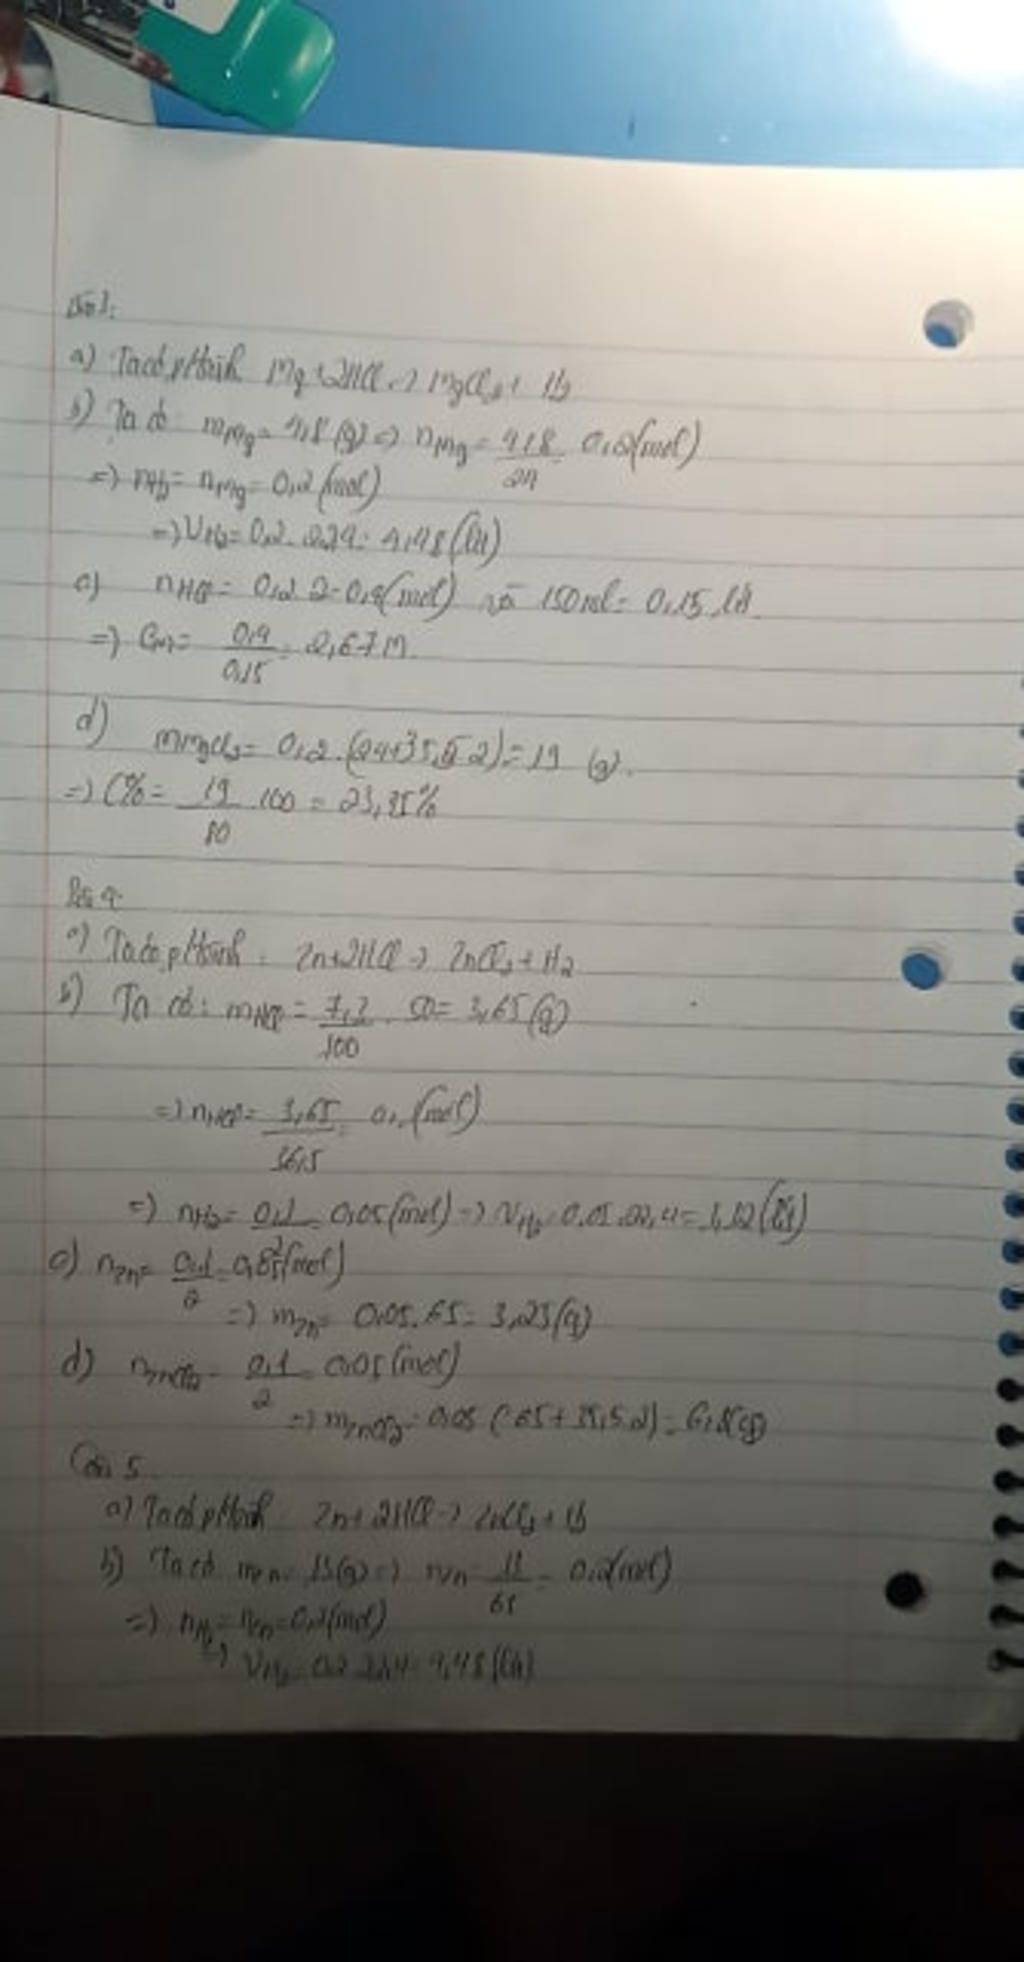 a) Ta có p/trình Mg + 2HCl -> MgCl2 + H2
b) Ta có: mMg = 4,8 (g) => nMg = 4,8/24 = 0,2 (mol)
=> nH2 = nMg = 0,2 (mol)
=> VH2 = 0,2 . 22,4 = 4,48 (lít)
c) nHCl = 0,2 . 2 = 0,4 (mol) và 150 ml = 0,15 lít
=> CM = 0,4/0,15 = 2,67 M
d) mMgCl2 = 0,2 . (24 + 35,5 . 2) = 19 (g).
=> C% = 19/80 . 100 = 23,75%
Bài 4
a) Ta có p/trình : Zn + 2HCl -> ZnCl2 + H2
b) Ta có : mHCl = 7,3/100 . 50 = 3,65 (g)
=> nHCl = 3,65/36,5 = 0,1 (mol)
=> nH2 = 0,1/2 = 0,05 (mol) => VH2 = 0,05 . 22,4 = 1,12 (lít)
c) nZn = 0,1/2 = 0,05 (mol)
=> mZn = 0,05 . 65 = 3,25 (g)
d) nZnCl2 = 0,1/2 = 0,05 (mol)
=> mZnCl2 = 0,05 (65 + 35,5 . 2) = 6,8 (g)
Câu 5
a) Ta có p/trình Zn + 2HCl -> ZnCl2 + H2
b) Ta có mZn = 13 (g) => nZn = 13/65 = 0,2 (mol)
=> nH2 = nZn = 0,2 (mol)
=> VH2 = 0,2 . 22,4 = 4,48 (lít)